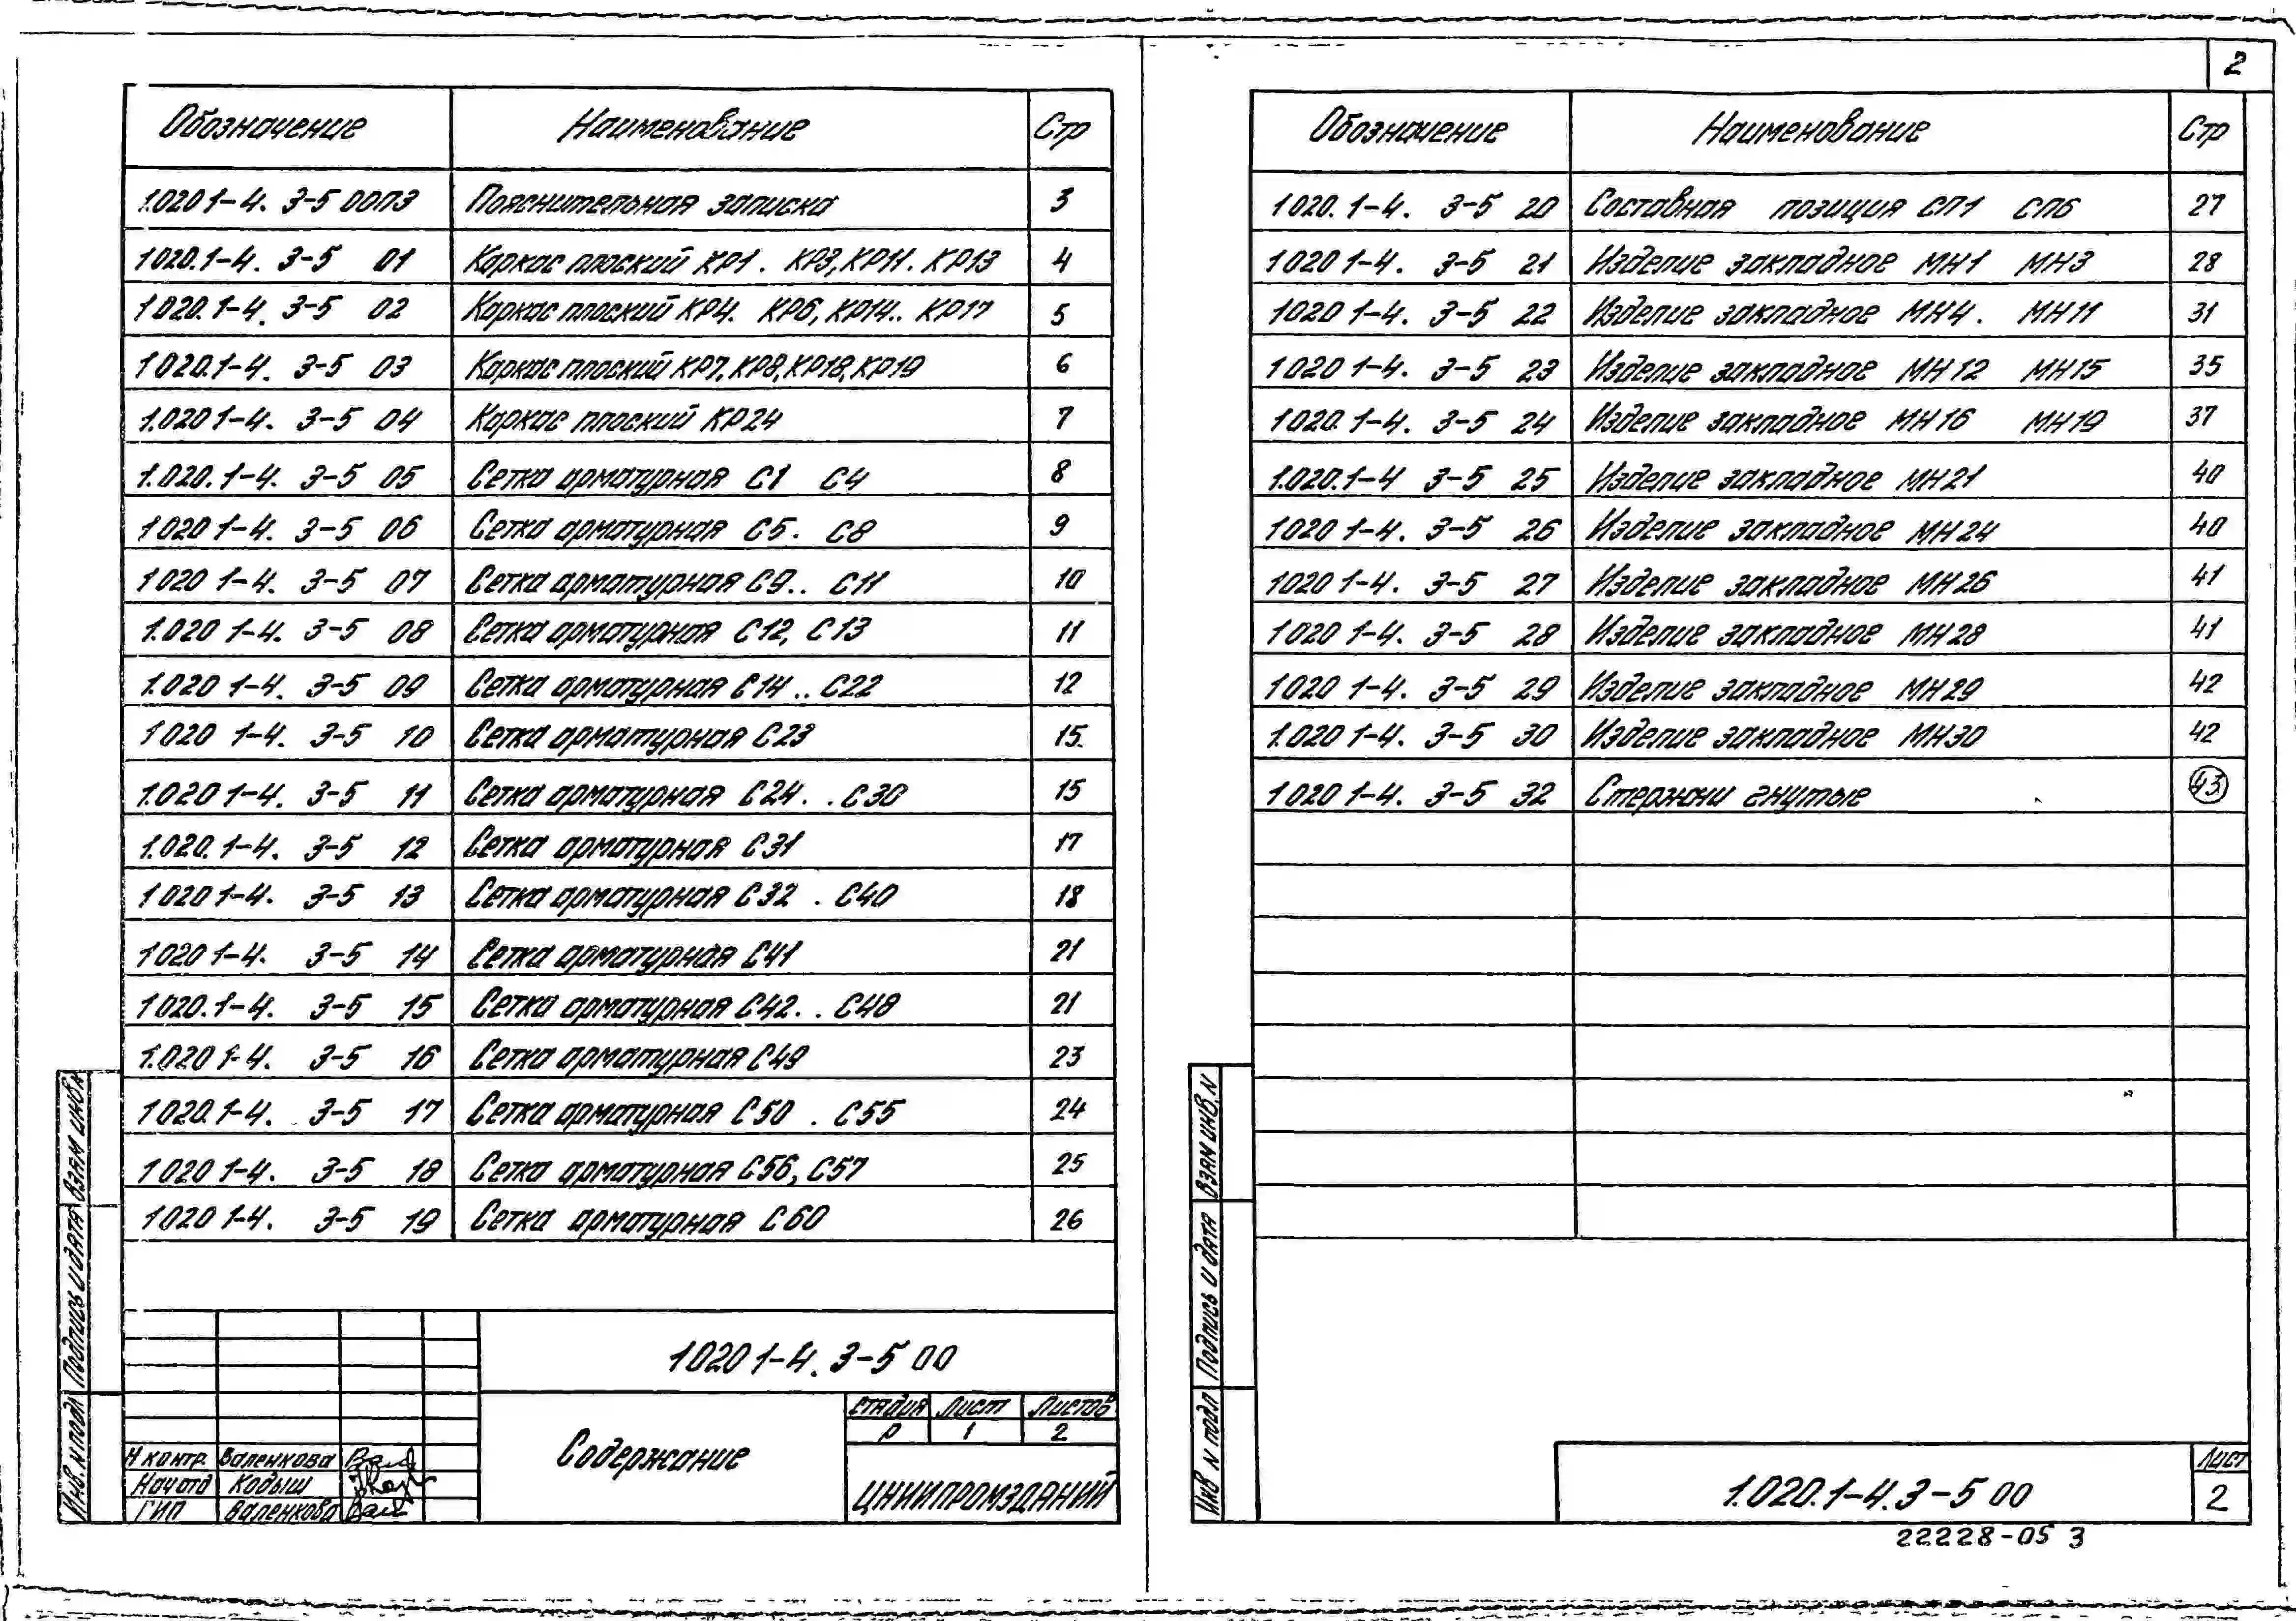 2
Обозначение Наименование Стр
1.020 1-4. 3-5 00ПЗ Пояснительная записка 3
1020.1-4. 3-5 01 Каркас плоский КР1 . КР3, КР11. КР13 4
1020.1-4. 3-5 02 Каркас плоский КР4. КР6, КР14.. КР17 5
1020.1-4. 3-5 03 Каркас плоский КР7, КР8, КР18, КР19 6
1.020 1-4. 3-5 04 Каркас плоский КР24 7
1.020.1-4. 3-5 05 Сетка арматурная С1 С4 8
1020 1-4. 3-5 06 Сетка арматурная С5. С8 9
1020 1-4. 3-5 07 Сетка арматурная С9.. С11 10
1.020 1-4. 3-5 08 Сетка арматурная С12, С13 11
1.020 1-4. 3-5 09 Сетка арматурная С14 .. С22 12
1020 1-4. 3-5 10 Сетка арматурная С23 15
1.020 1-4. 3-5 11 Сетка арматурная С24. . С30 15
1.020. 1-4. 3-5 12 Сетка арматурная С31 17
1020 1-4. 3-5 13 Сетка арматурная С32 . С40 18
1020 1-4. 3-5 14 Сетка арматурная С41 21
1.020.1-4. 3-5 15 Сетка арматурная С42. . С48 21
1.020 1-4. 3-5 16 Сетка арматурная С49 23
1020.1-4. 3-5 17 Сетка арматурная С50 . С55 24
1020 1-4. 3-5 18 Сетка арматурная С56, С57 25
1020 1-4. 3-5 19 Сетка арматурная С60 26
1020 1-4. 3-5 00
Содержание
Стадия Лист Листов
Р 1 2
ЦНИИПРОМЗДАНИЙ
Н контр. Валенкова
Нач отд Кодыш
ГИП Валенкова
Инв. N подл Подпись и дата Взам инв.
Обозначение Наименование Стр
1020. 1-4. 3-5 20 Составная позиция СП1 СП6 27
1020 1-4. 3-5 21 Изделие закладное МН1 МН3 28
1020 1-4. 3-5 22 Изделие закладное МН4 . МН11 31
1020 1-4. 3-5 23 Изделие закладное МН12 МН15 35
1020. 1-4. 3-5 24 Изделие закладное МН16 МН19 37
1.020.1-4 3-5 25 Изделие закладное МН21 40
1020 1-4. 3-5 26 Изделие закладное МН24 40
1020 1-4. 3-5 27 Изделие закладное МН26 41
1020 1-4. 3-5 28 Изделие закладное МН28 41
1020 1-4. 3-5 29 Изделие закладное МН29 42
1.020 1-4. 3-5 30 Изделие закладное МН30 42
1020 1-4. 3-5 32 Стержни гнутые 43
Инв N подл Подпись и дата Взам инв. N
1.020.1-4.3-5 00
Лист
2
22228-05 3